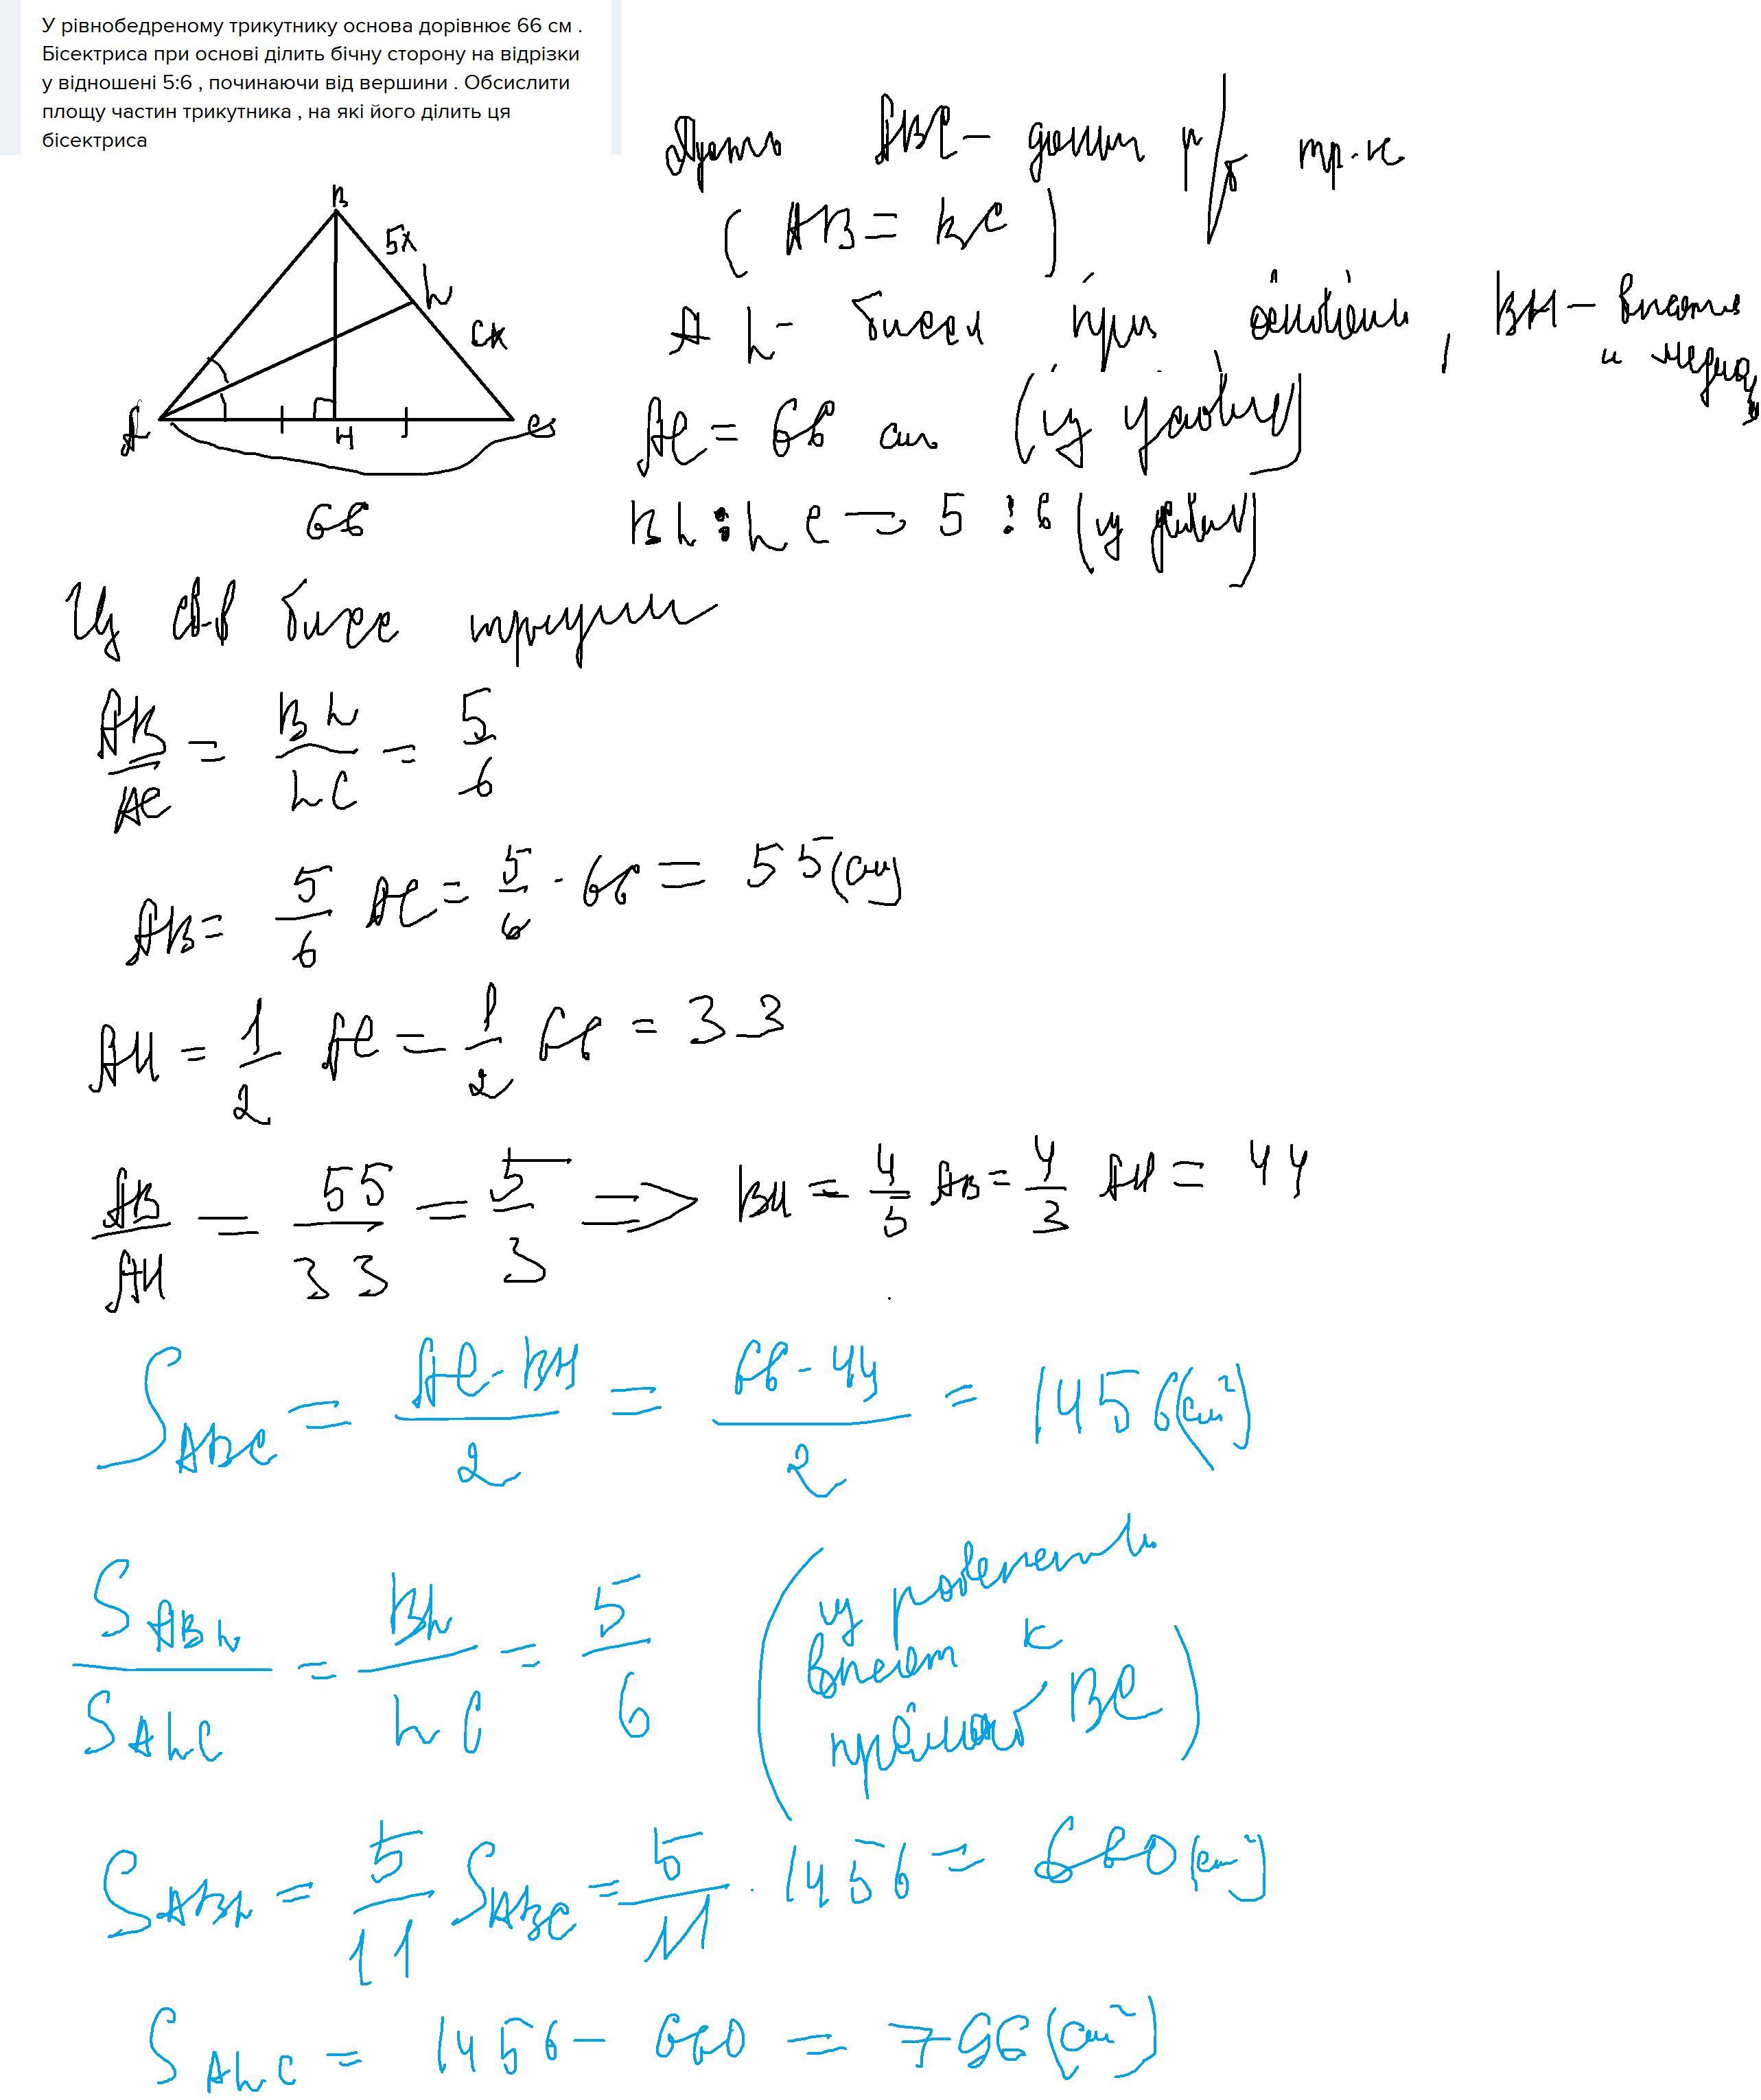 У рівнобедреному трикутнику основа дорівнює 66 см .
Бісектриса при основі ділить бічну сторону на відрізки
у відношені 5:6 , починаючи від вершини . Обсислити
площу частин трикутника , на які його ділить ця
бісектриса
Пусть ABC - р/б
(AB = BC)
B
5x
L
6x
A H C
66
AL - при , BH - высота
и
AC = 66 см (из условия)
BL : LC = 5 : 6 (из
Из св-в бисс
AB/AC = BL/LC = 5/6
AB = 5/6 AC = 5/6 · 66 = 55 (см)
AH = 1/2 AC = 1/2 66 = 33
AB/AH = 55/33 = 5/3 => BH = 4/5 AB = 4/3 AH = 44
S ABC = AC · BH / 2 = 66 · 44 / 2 = 1456 (см²)
S ABL / S ALC = BL / LC = 5/6 (из
высот к
прямой BC)
S ABL = 5/11 S ABC = 5/11 · 1456 = 660 (см²)
S ALC = 1456 - 660 = 796 (см²)